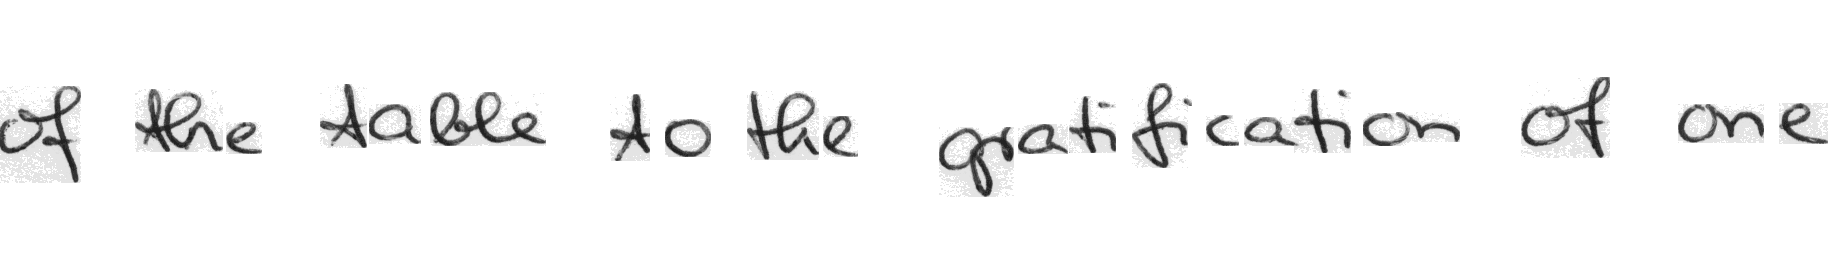 of the table to the gratification of one